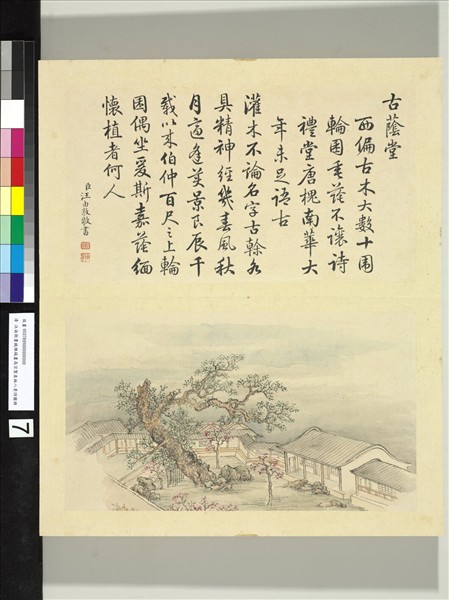 古蔭堂
西偏古木大數十圍
輪囷垂蔭不讓詩
禮堂唐槐南華大
年未足語古
灌木不論名字古榦各
具精神經幾春風秋
月適逢美景良辰千
載以來伯仲百尺之上輪
囷偶坐爰斯嘉蔭緬
懷植者何人
臣汪由敦敬書
7